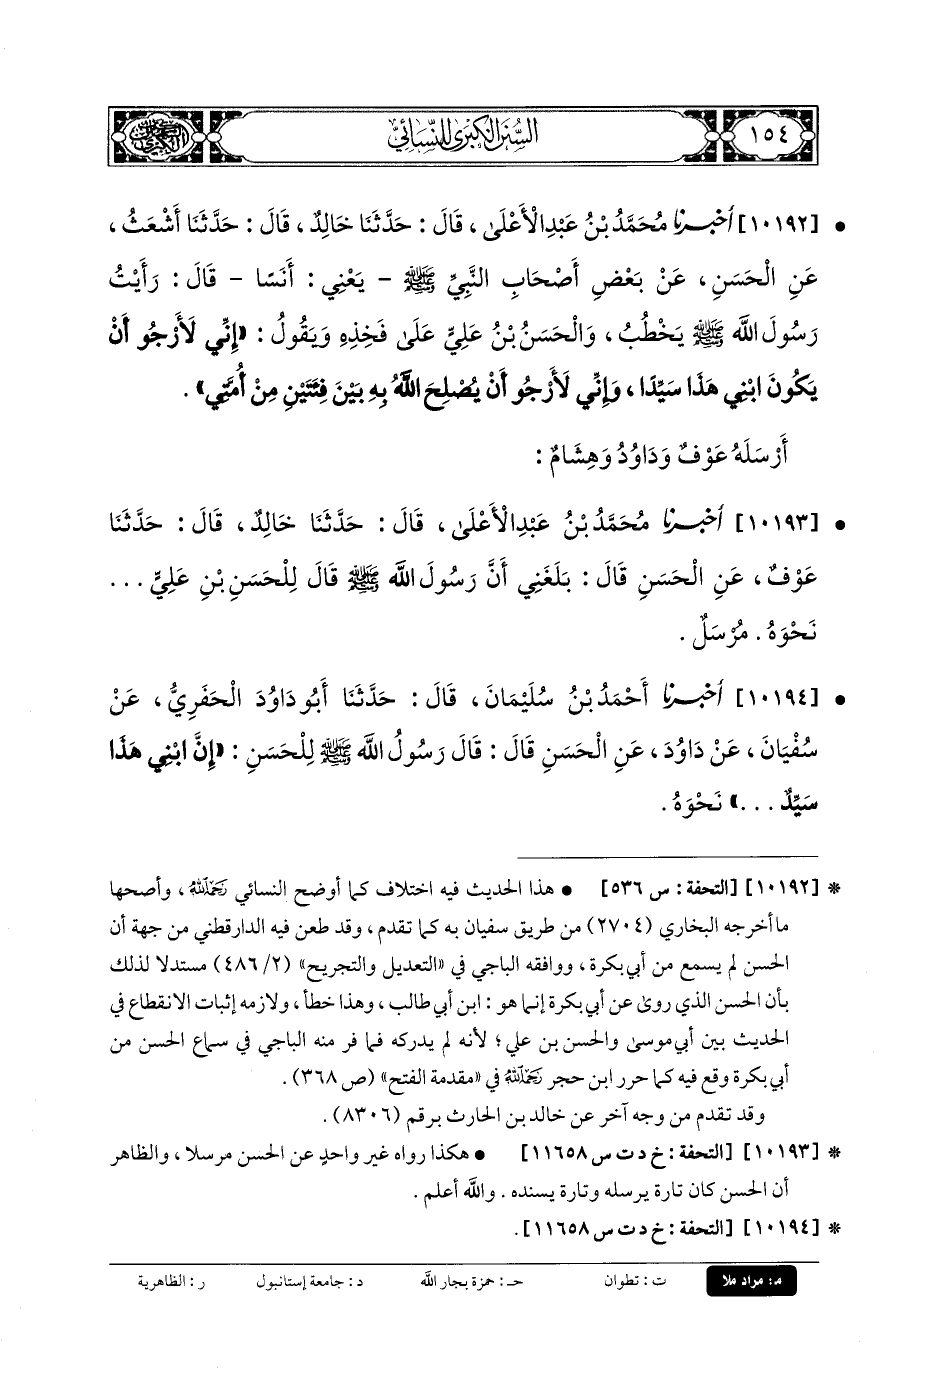 ١٥٤
السنن الكبرى للنسائي
• [١٠١٩٢] أخبرنا مُحَمَّدُ بْنُ عَبْدِالْأَعْلَى، قَالَ: حَدَّثَنَا خَالِدٌ، قَالَ: حَدَّثَنَا أَشْعَثُ،
عَنِ الْحَسَنِ، عَنْ بَعْضِ أَصْحَابِ النَّبِيِّ ﷺ - يَعْنِي: أَنَسًا - قَالَ: رَأَيْتُ
رَسُولَ اللَّه ﷺ يَخْطُبُ، وَالْحَسَنُ بْنُ عَلِيٍّ عَلَى فَخِذِهِ وَيَقُولُ: «إِنِّي لَأَرْجُو أَنْ
يَكُونَ ابْنِي هَذَا سَيِّدًا، وَإِنِّي لَأَرْجُو أَنْ يُصْلِحَ اللَّهُ بِهِ بَيْنَ فِئَتَيْنِ مِنْ أُمَّتِي».
أَرْسَلَهُ عَوْفٌ وَدَاوُدُ وَهِشَامٌ:
• [١٠١٩٣] أخبرنا مُحَمَّدُ بْنُ عَبْدِالْأَعْلَى، قَالَ: حَدَّثَنَا خَالِدٌ، قَالَ: حَدَّثَنَا
عَوْفٌ، عَنِ الْحَسَنِ قَالَ: بَلَغَنِي أَنَّ رَسُولَ اللَّه ﷺ قَالَ لِلْحَسَنِ بْنِ عَلِيٍّ ...
نَحْوَهُ. مُرْسَلٌ.
• [١٠١٩٤] أخبرنا أَحْمَدُ بْنُ سُلَيْمَانَ، قَالَ: حَدَّثَنَا أَبُو دَاوُدَ الْحَفَرِيُّ، عَنْ
سُفْيَانَ، عَنْ دَاوُدَ، عَنِ الْحَسَنِ قَالَ: قَالَ رَسُولُ اللَّه ﷺ لِلْحَسَنِ: «إِنَّ ابْنِي هَذَا
سَيِّدٌ ...» نَحْوَهُ.
* [١٠١٩٢] [التحفة: س ٥٣٦] • هذا الحديث فيه اختلاف كما أوضح النسائي رَحِمَهُ اللَّهُ، وأصحها
ما أخرجه البخاري (٢٧٠٤) من طريق سفيان به كما تقدم، وقد طعن فيه الدارقطني من جهة أن
الحسن لم يسمع من أبي بكرة، ووافقه الباجي في «التعديل والتجريح» (٢/ ٤٨٦) مستدلا لذلك
بأن الحسن الذي روى عن أبي بكرة إنما هو: ابن أبي طالب، وهذا خطأ، ولازمه إثبات الانقطاع في
الحديث بين أبي موسى والحسن بن علي؛ لأنه لم يدركه فما فر منه الباجي في سماع الحسن من
أبي بكرة وقع فيه كما حرر ابن حجر رَحِمَهُ اللَّهُ في «مقدمة الفتح» (ص ٣٦٨).
وقد تقدم من وجه آخر عن خالد بن الحارث برقم (٨٣٠٦).
* [١٠١٩٣] [التحفة: خ د ت س ١١٦٥٨] • هكذا رواه غير واحدٍ عن الحسن مرسلا، والظاهر
أن الحسن كان تارة يرسله وتارة يسنده. واللَّه أعلم.
* [١٠١٩٤] [التحفة: خ د ت س ١١٦٥٨].
م: مراد ملا ت: تطوان حـ: حمزة بجار اللَّه د: جامعة إستانبول ر: الظاهرية